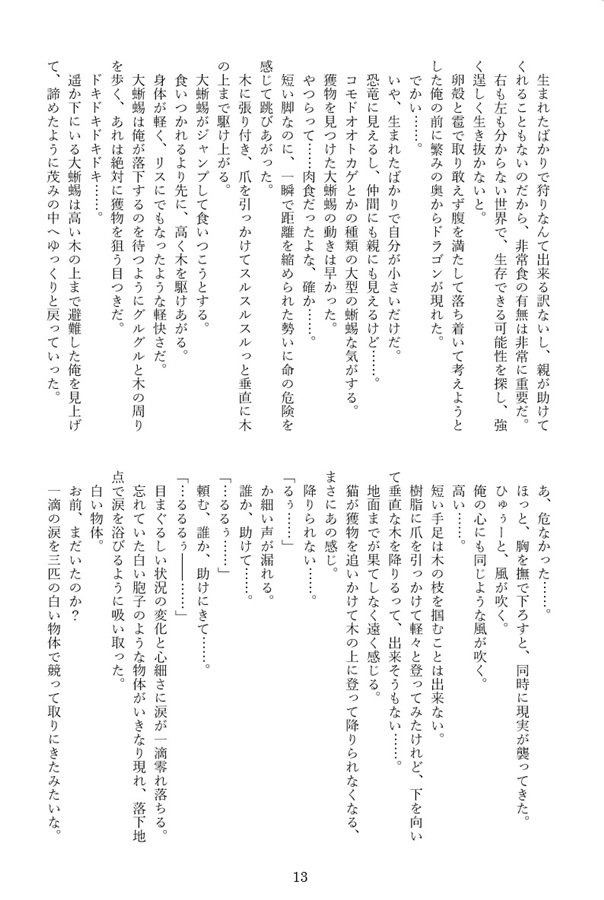 生まれたばかりで狩りなんて出来る訳ないし、親が助けて
くれることもないのだから、非常食の有無は非常に重要だ。
　右も左も分からない世界で、生存できる可能性を探し、強
く逞しく生き抜かないと。
　卵殻と雹で取り敢えず腹を満たして落ち着いて考えようと
した俺の前に繁みの奥からドラゴンが現れた。
　でかい……。
　いや、生まれたばかりで自分が小さいだけだ。
　恐竜に見えるし、仲間にも親にも見えるけど……。
　コモドオオトカゲとかの種類の大型の蜥蜴な気がする。
　獲物を見つけた大蜥蜴の動きは早かった。
　やつらって……肉食だったよな、確か……。
　短い脚なのに、一瞬で距離を縮められた勢いに命の危険を
感じて跳びあがった。
　木に張り付き、爪を引っかけてスルスルスルっと垂直に木
の上まで駆け上がる。
　大蜥蜴がジャンプして食いつこうとする。
　食いつかれるより先に、高く木を駆けあがる。
　身体が軽く、リスにでもなったような軽快さだ。
　大蜥蜴は俺が落下するのを待つようにグルグルと木の周り
を歩く、あれは絶対に獲物を狙う目つきだ。
　ドキドキドキドキ……。
　遥か下にいる大蜥蜴は高い木の上まで避難した俺を見上げ
て、諦めたように茂みの中へゆっくりと戻っていった。
　あ、危なかった……。
　ほっと、胸を撫で下ろすと、同時に現実が襲ってきた。
　ひゅぅーと、風が吹く。
　俺の心にも同じような風が吹く。
　高い……。
　短い手足は木の枝を掴むことは出来ない。
　樹脂に爪を引っかけて軽々と登ってみたけれど、下を向い
て垂直な木を降りるって、出来そうもない……。
　地面までが果てしなく遠く感じる。
　猫が獲物を追いかけて木の上に登って降りられなくなる、
まさにあの感じ。
　降りられない……。
「るぅ……」
　か細い声が漏れる。
　誰か、助けて……。
「…るるぅ……」
　頼む、誰か、助けにきて……。
「…るるるぅ――……」
　目まぐるしい状況の変化と心細さに涙が一滴零れ落ちる。
　忘れていた白い胞子のような物体がいきなり現れ、落下地
点で涙を浴びるように吸い取った。
　白い物体。
　お前、まだいたのか？
　一滴の涙を三匹の白い物体で競って取りにきたみたいな。
13